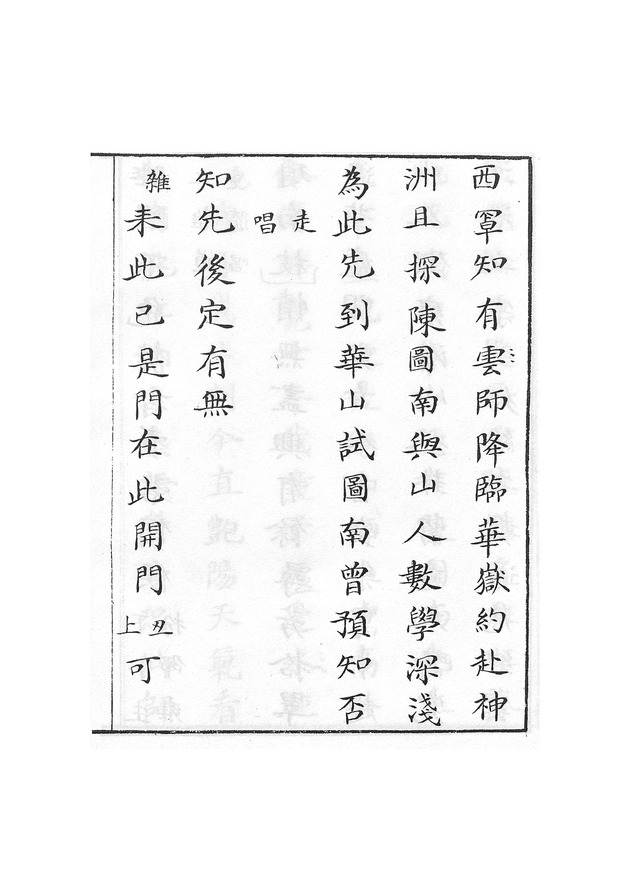 西罩知有雲師降臨華嶽約赴神
洲且探陳圖南與山人數學深淺
為此先到華山試圖南曾預知否
走唱
知先後定有無
雜来此已是門在此開門丑上可